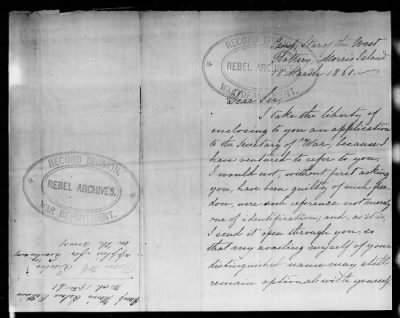 Camp, Star of the West
Battery, Morris Island
18 March 1861.
RECORD DIVISION,
REBEL ARCHIVES,
WAR DEPARTMENT.
Dear Sir,
I take the liberty of
enclosing to you an application
to the Secretary of War, because I
have ventured to refer to you.
I would not, without first asking
you, have been guilty of such free-
dom, were such reference not merely
one of identification, and, as it is,
I send it open through you, so
that my availing myself of your
distinguished name may still
remain optional with yourself
RECORD DIVISION,
REBEL ARCHIVES.
WAR DEPARTMENT.
Camp, Morris Island
applies for
in the Army